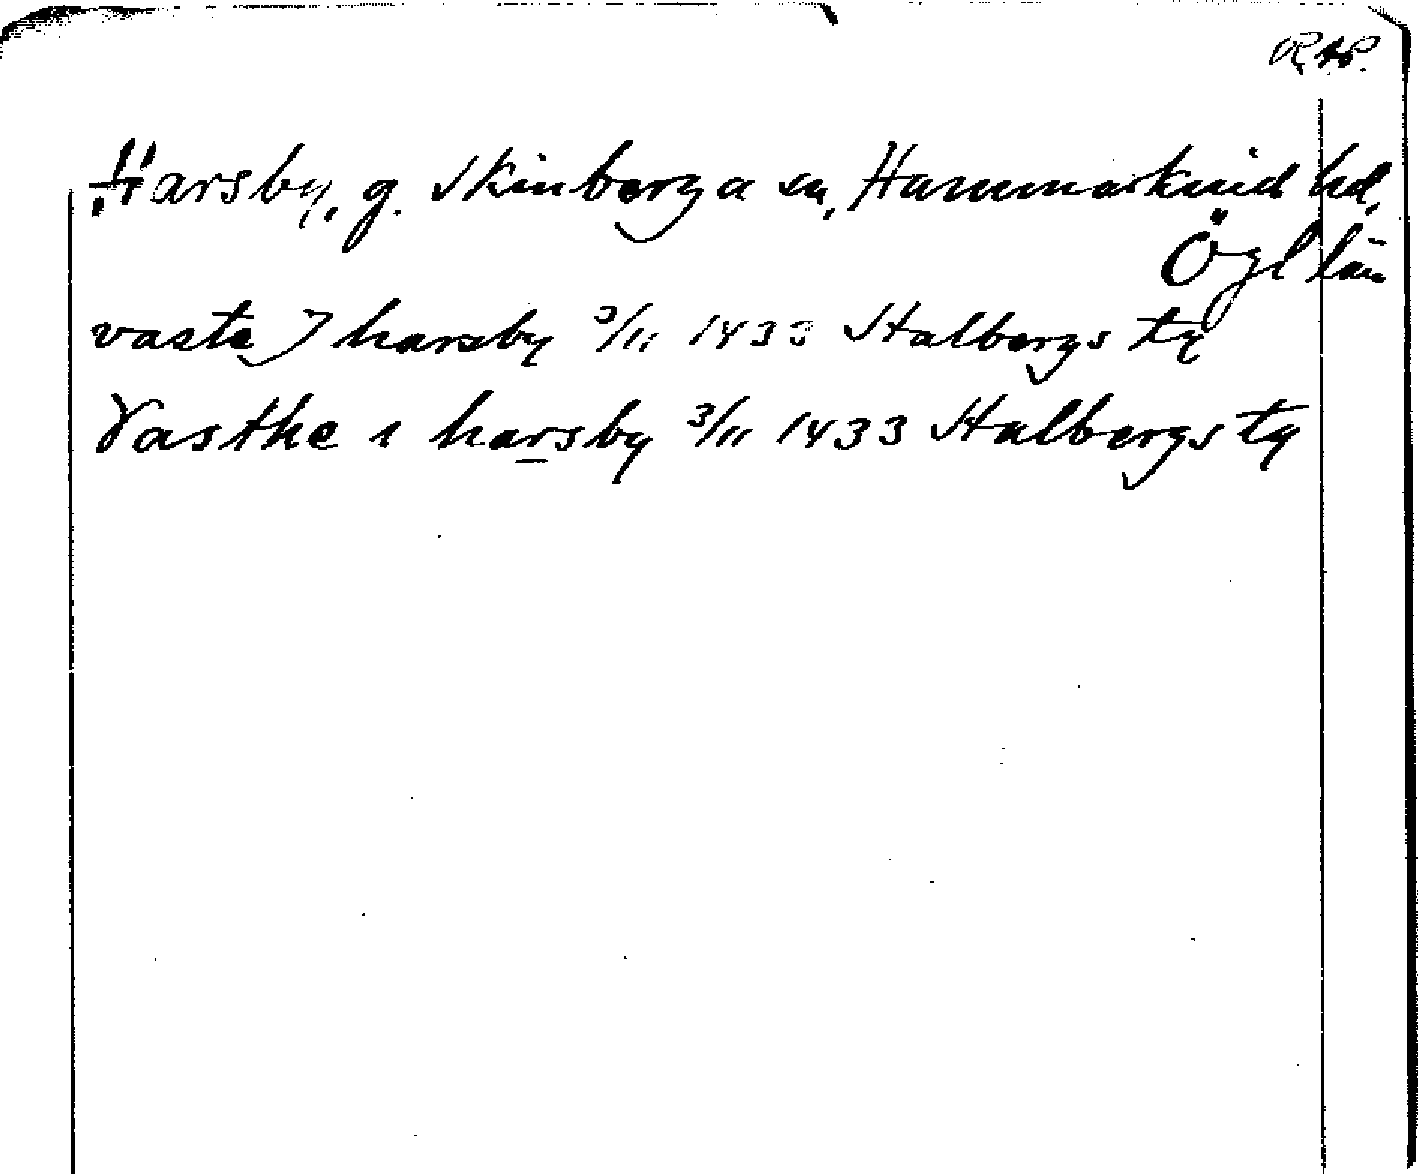 RAP.
Harsby, g. Skinberga sn, Hammarkind hd,
Ögl län
vaste J harsby 3/11 1433 Stalbergs ty
Vasthe i harsby 3/11 1433 Stalbergs ty